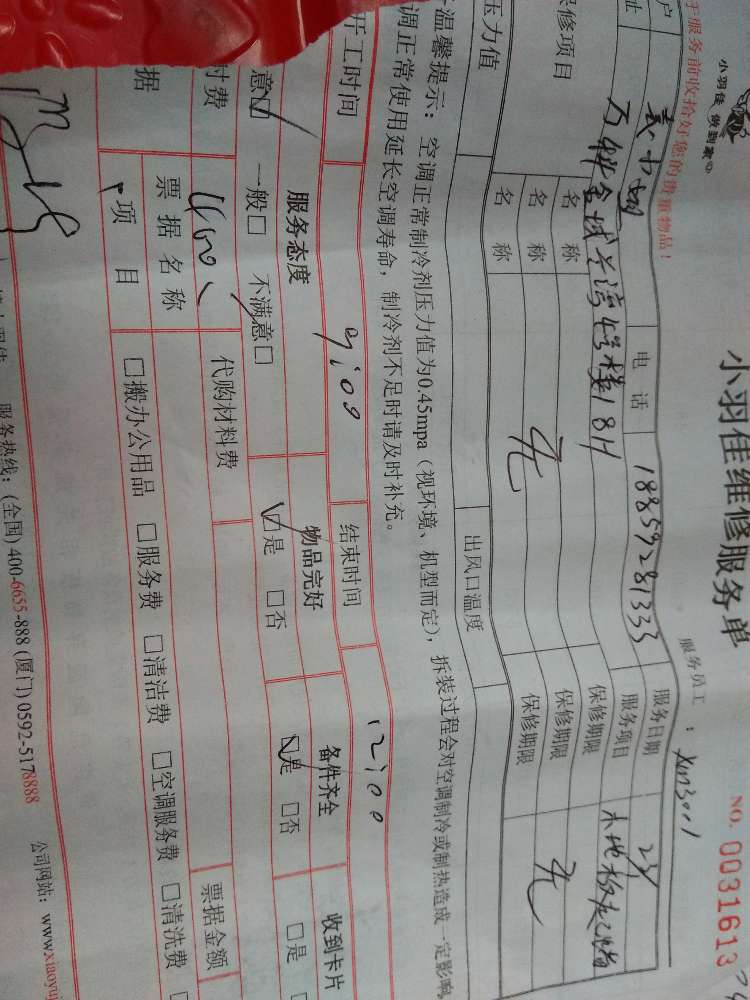 小羽佳 做到家
小羽佳维修服务单
NO. 0031613
于服务前收拾好您的贵重物品！
服务员工：XM3001
户
电 话 18859281333
服务日期
址
号楼18H
服务项目
保修项目
名 称
保修期限
名 称
无
保修期限
无
名 称
保修期限
压力值
出风口温度
温馨提示：空调正常制冷剂压力值为0.45mpa（视环境、机型而定），拆装过程会对空调制冷或制热造成一定影响，
调正常使用延长空调寿命，制冷剂不足时请及时补充。
开工时间 9:00 结束时间 12:00
服务态度 物品完好 备件齐全 收到卡片
意□ 一般□ 不满意□ □是 □否 □是 □否 □是
付费
代购材料费
据 票据名称 票据金额
项 目 □搬办公用品 □服务费 □清洁费 □空调服务费 □清洗费
服务热线：(全国) 400-6655-888 (厦门) 0592-5178888 公司网站：www.xiaoyuj